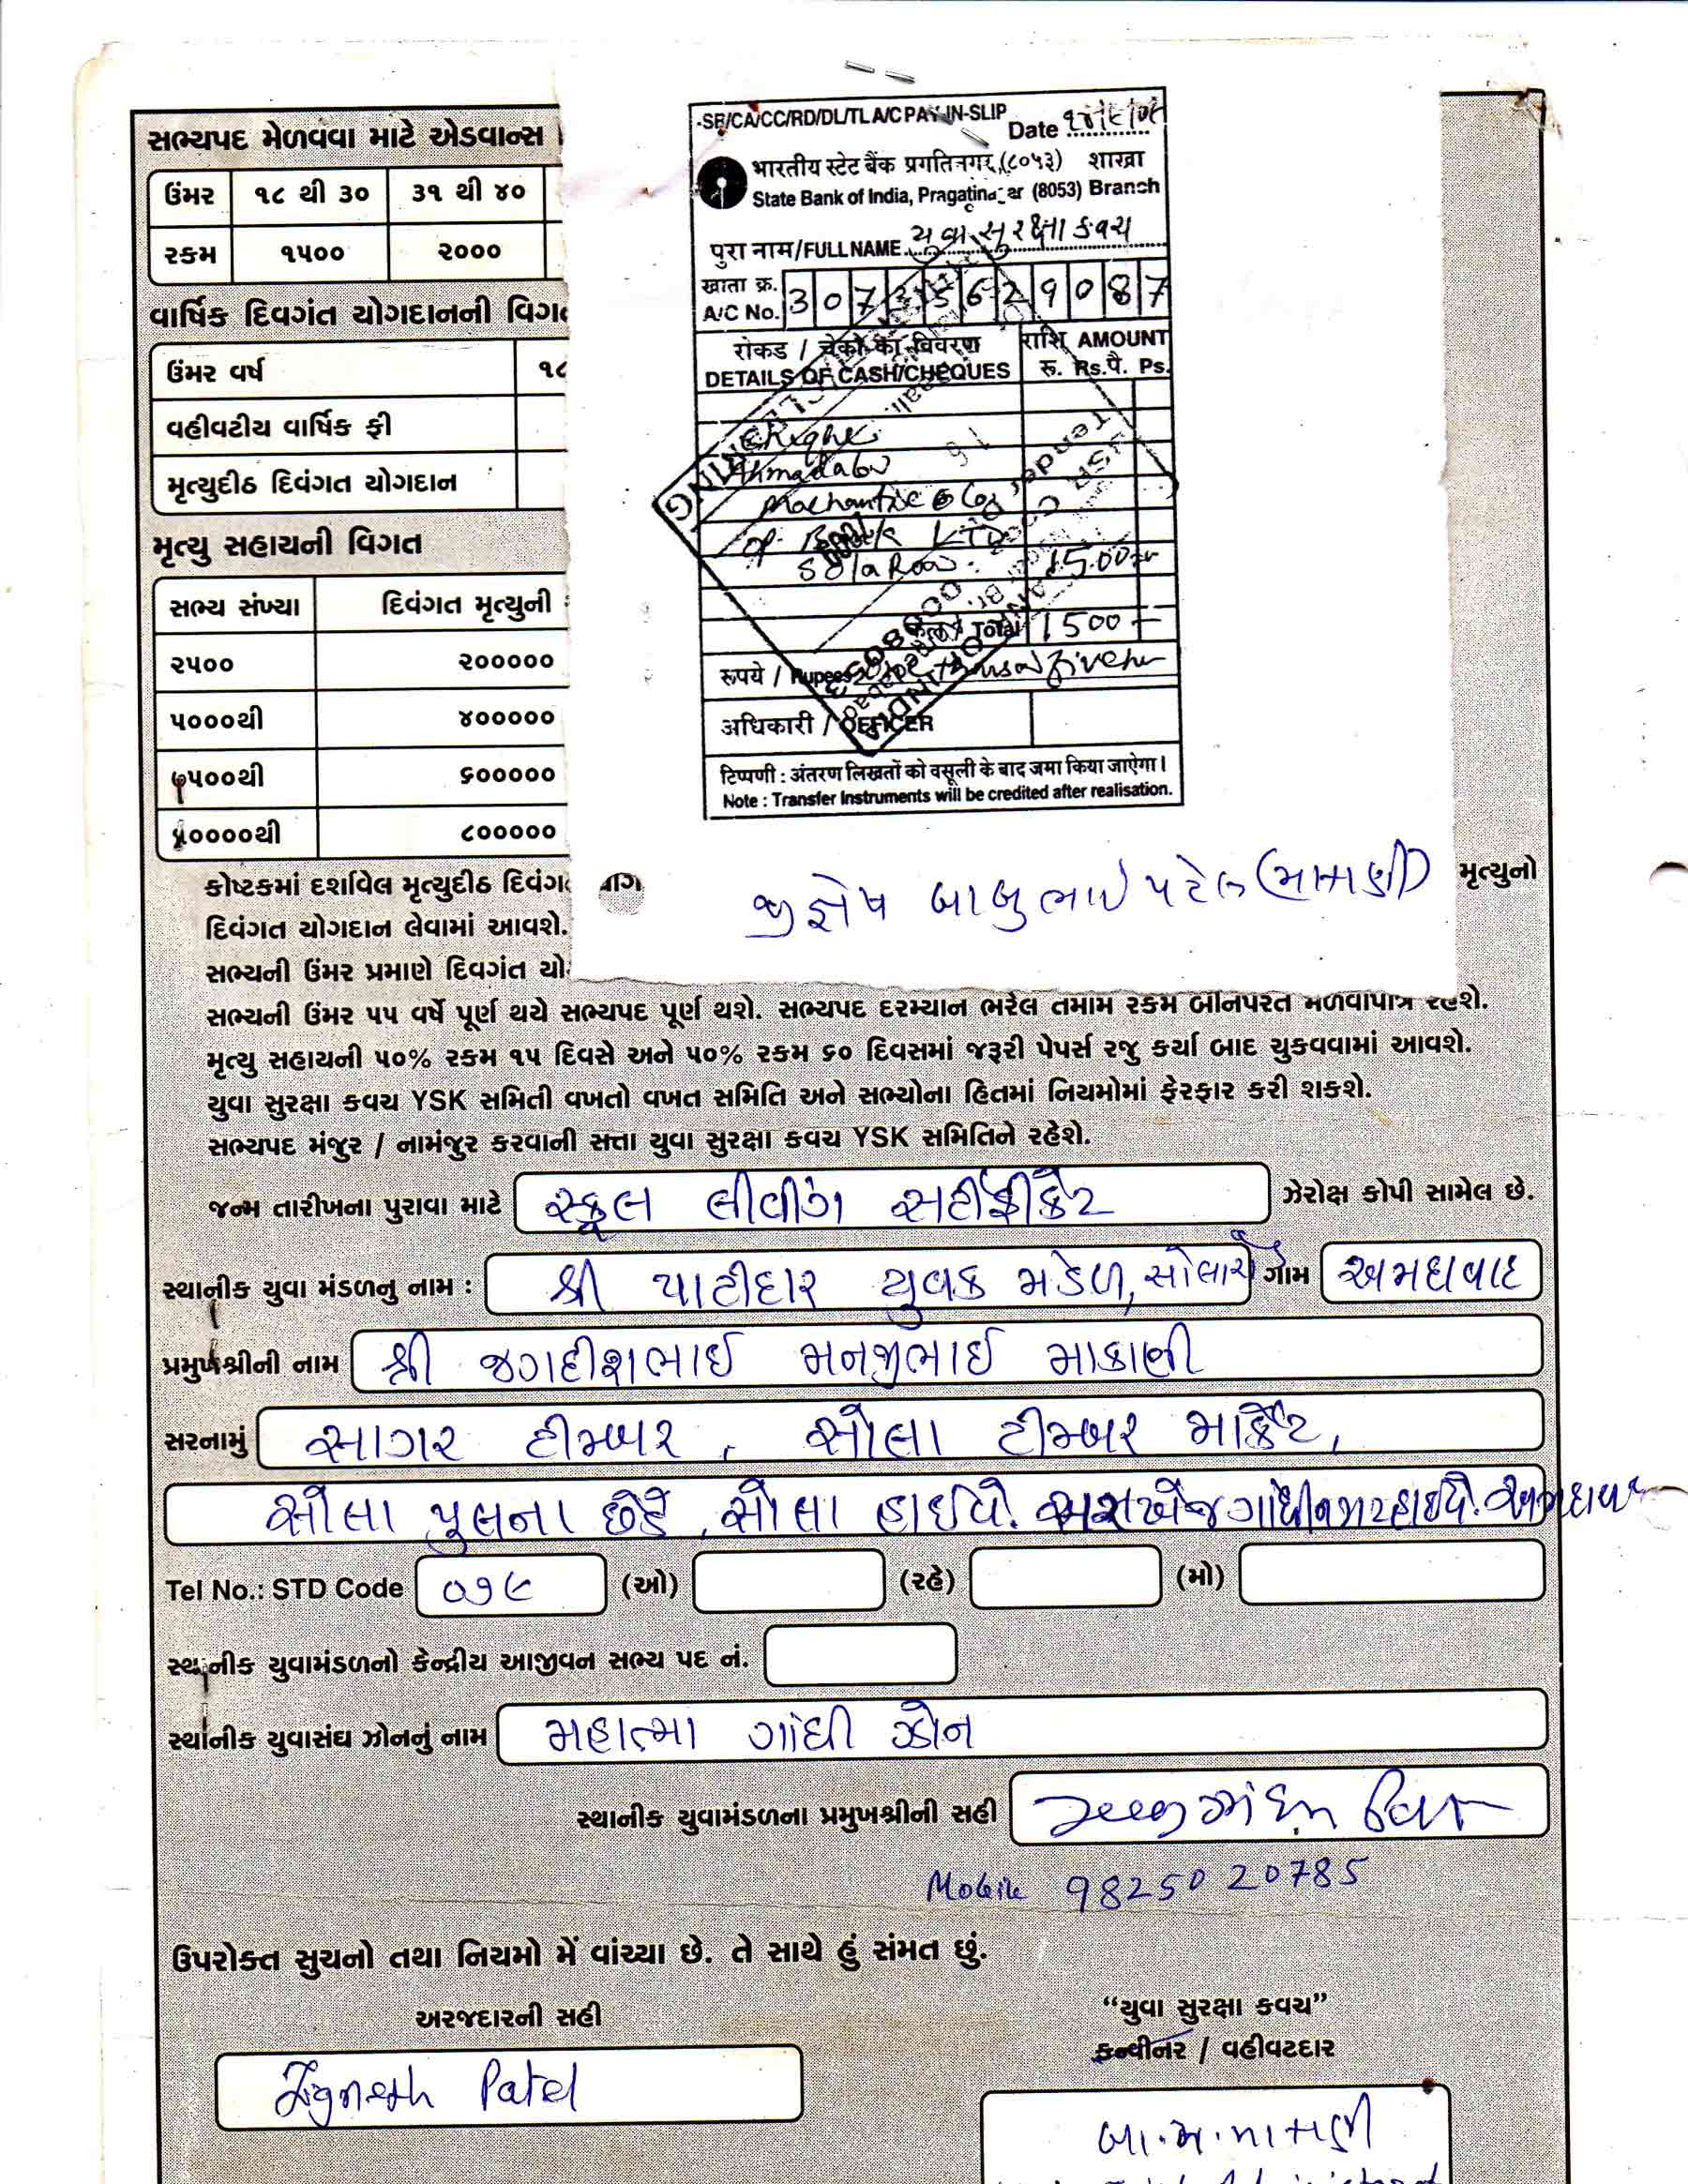 સભ્યપદ મેળવવા માટે એડવાન્સ
ઉંમર ૧૮ થી ૩૦ ૩૧ થી ૪૦
રકમ ૧૫૦૦ ૨૦૦૦
વાર્ષિક દિવગંત યોગદાનની
ઉંમર વર્ષ ૧૮
વહીવટીય વાર્ષિક ફી
મૃત્યુદીઠ દિવંગત યોગદાન
મૃત્યુ સહાયની વિગત
સભ્ય સંખ્યા દિવંગત મૃત્યુની
૨૫૦૦ ૨૦૦૦૦૦
૫૦૦૦થી ૪૦૦૦૦૦
૭૫૦૦થી ૬૦૦૦૦૦
૧૦૦૦૦થી ૮૦૦૦૦૦
-SB/CA/CC/RD/DL/TL A/C PAY-IN-SLIP
Date
भारतीय स्टेट बैंक प्रगतिनगर (८०५३) शाखा
State Bank of India, Pragatinagar (8053) Branch
पुरा नाम/FULL NAME યુવા સુરક્ષા કવચ
खाता क्र.
A/C No. 30735629087
रोकड / चेकों का विवरण राशि AMOUNT
DETAILS OF CASH/CHEQUES रू. Rs. पै. Ps.
Ahmadabad
Bank LTD
Sola Road. 1500
Total 1500
रूपये / Rupees
अधिकारी / OFFICER
टिप्पणी : अंतरण लिखतों को वसूली के बाद जमा किया जाऐगा।
Note : Transfer Instruments will be credited after realisation.
જીજ્ઞેષ બાબુભાઈ પટેલ
કોષ્ટકમાં દર્શાવેલ મૃત્યુદીઠ મૃત્યુનો
દિવંગત યોગદાન લેવામાં આવશે.
સભ્યની ઉંમર પ્રમાણે દિવગંત
સભ્યની ઉંમર ૫૫ વર્ષે પૂર્ણ થયે સભ્યપદ પૂર્ણ થશે. સભ્યપદ દરમ્યાન ભરેલ તમામ રકમ બીનપરત મળવાપાત્ર રહેશે.
મૃત્યુ સહાયની ૫૦% રકમ ૧૫ દિવસે અને ૫૦% રકમ ૬૦ દિવસમાં જરૂરી પેપર્સ રજુ કર્યા બાદ ચુકવવામાં આવશે.
યુવા સુરક્ષા કવચ YSK સમિતી વખતો વખત સમિતિ અને સભ્યોના હિતમાં નિયમોમાં ફેરફાર કરી શકશે.
સભ્યપદ મંજુર / નામંજુર કરવાની સત્તા યુવા સુરક્ષા કવચ YSK સમિતિને રહેશે.
જન્મ તારીખના પુરાવા માટે સ્કૂલ લીવીંગ સર્ટીફીકેટ ઝેરોક્ષ કોપી સામેલ છે.
સ્થાનીક યુવા મંડળનુ નામ : શ્રી પાટીદાર યુવક મંડળ, સોલારોડ ગામ અમદાવાદ
પ્રમુખશ્રીની નામ શ્રી જગદીશભાઈ મનજીભાઈ માકાણી
સરનામું સાગર ટીમ્બર, સોલા ટીમ્બર માર્કેટ,
સોલા પુલના છેડે, સોલા હાઈવે. સરખેજ ગાંધીનગર હાઈવે. અમદાવાદ
Tel No.: STD Code ૦૭૯ (ઓ) (રહે) (મો)
સ્થાનીક યુવામંડળનો કેન્દ્રીય આજીવન સભ્ય પદ નં.
સ્થાનીક યુવાસંઘ ઝોનનું નામ મહાત્મા ગાંધી ઝોન
સ્થાનીક યુવામંડળના પ્રમુખશ્રીની સહી
Mobile 9825020785
ઉપરોક્ત સુચનો તથા નિયમો મેં વાંચ્યા છે. તે સાથે હું સંમત છું.
અરજદારની સહી
“યુવા સુરક્ષા કવચ”
કન્વીનર / વહીવટદાર
Jignesh Patel